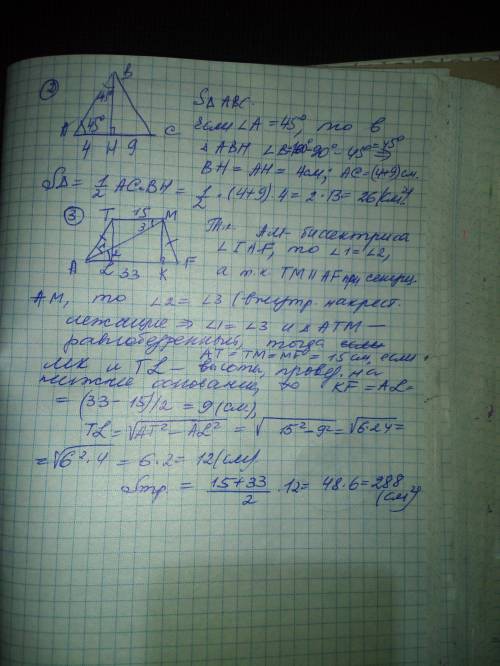 ②
B
45°
A 45° C
4 H 9
S△ABC
Если ∠A = 45°, то в
△ABH ∠B = -90° - 45° = 45° ⇒
BH = AH = 4 см; AC = (4+9) см.
S△ = 1/2 AC·BH = 1/2 · (4+9)·4 = 2·13 = 26 (см²)
③
T 15 M
3
1 2
A L 33 K F
Т.к. AM - биссектриса
∠TAF, то ∠1=∠2,
а т.к TM∥AF при секущ.
AM, то ∠2 = ∠3 (внутр. накрест.
лежащие ⇒ ∠1=∠3 и △ATM —
равнобедренный, тогда если
AT = TM = MF = 15 см, если
MK и TL — высоты, провед. на
нижнее основание, то KF = AL =
= (33-15)/2 = 9 (см),
TL = √AT² - AL² = √15² - 9² = √6·24 =
= √6²·4 = 6·2 = 12 (см)
Sтр. = 15+33/2 · 12 = 48·6 = 288
(см²)